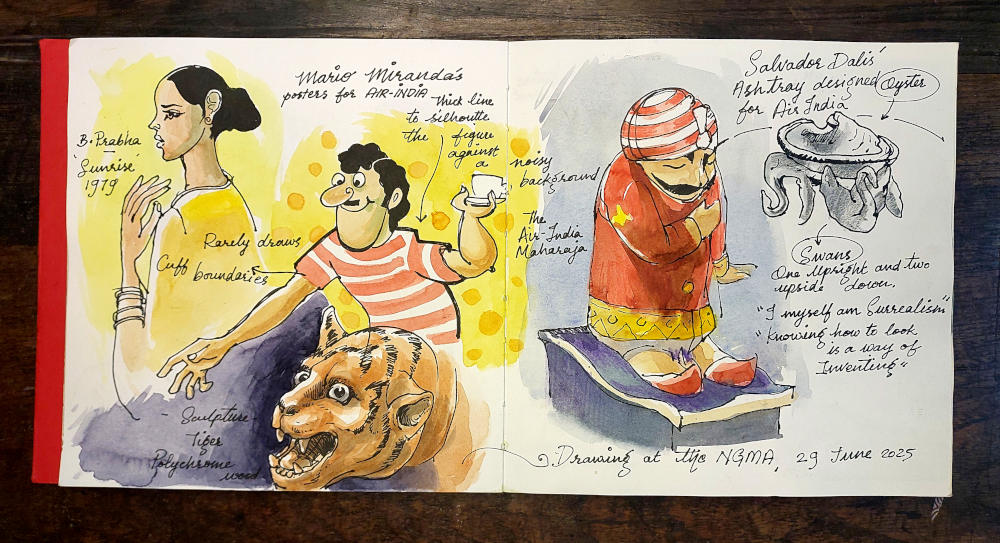 B. Prabha
'Sunrise'
1979
Mario Miranda's
posters for AIR-INDIA
thick line
to silhoutte
the figure
against
a
noisy
background
Rarely draws
Cuff boundaries
The
Air-India
Maharaja
- Sculpture -
Tiger
Polychrome
wood
Salvador Dali's
Ashtray designed
for Air India
Oyster
Swans
One Upright and two
upside down.
"I myself am Surrealism"
"Knowing how to look
is a way of
Inventing"
Drawing at the NGMA, 29 June 2025